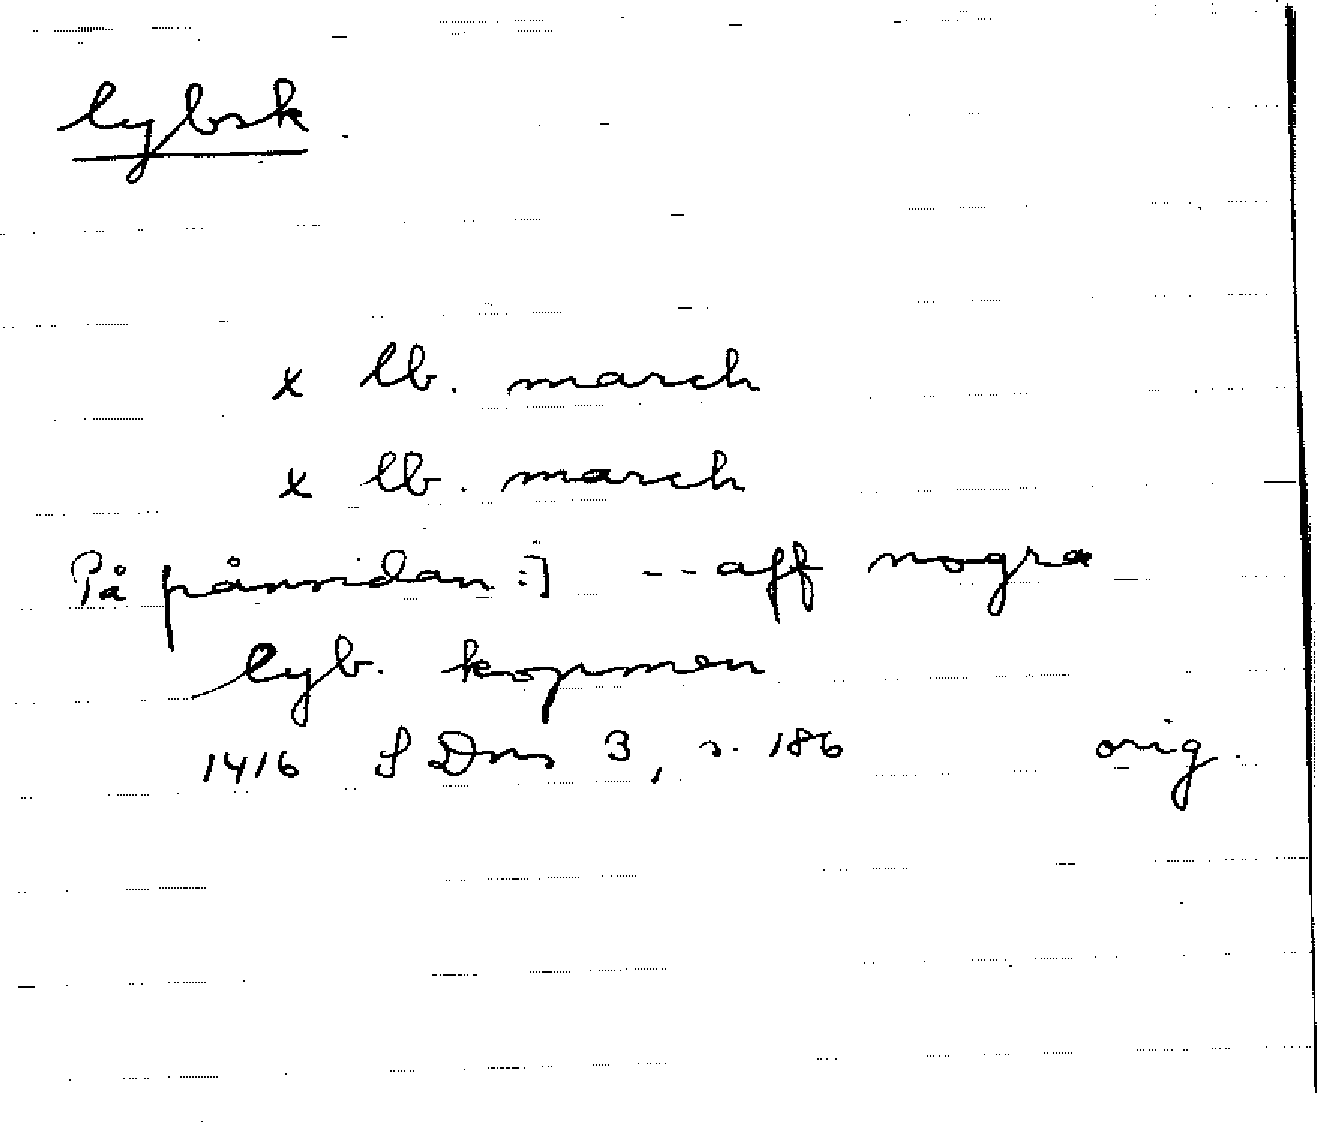 lybsk
x lb. march
x lb. march
På pånsidan :] -- aff nogra
lyb. kopmen
1416 SDns 3, s. 186 orig.